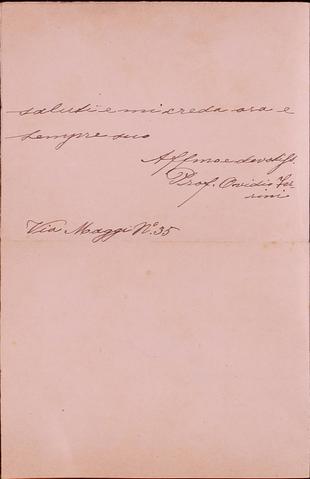 saluti e mi creda ora e
sempre suo
Affmo e devotiss.
Prof. Ovidio Fer
rini
Via Maggi N.º 35